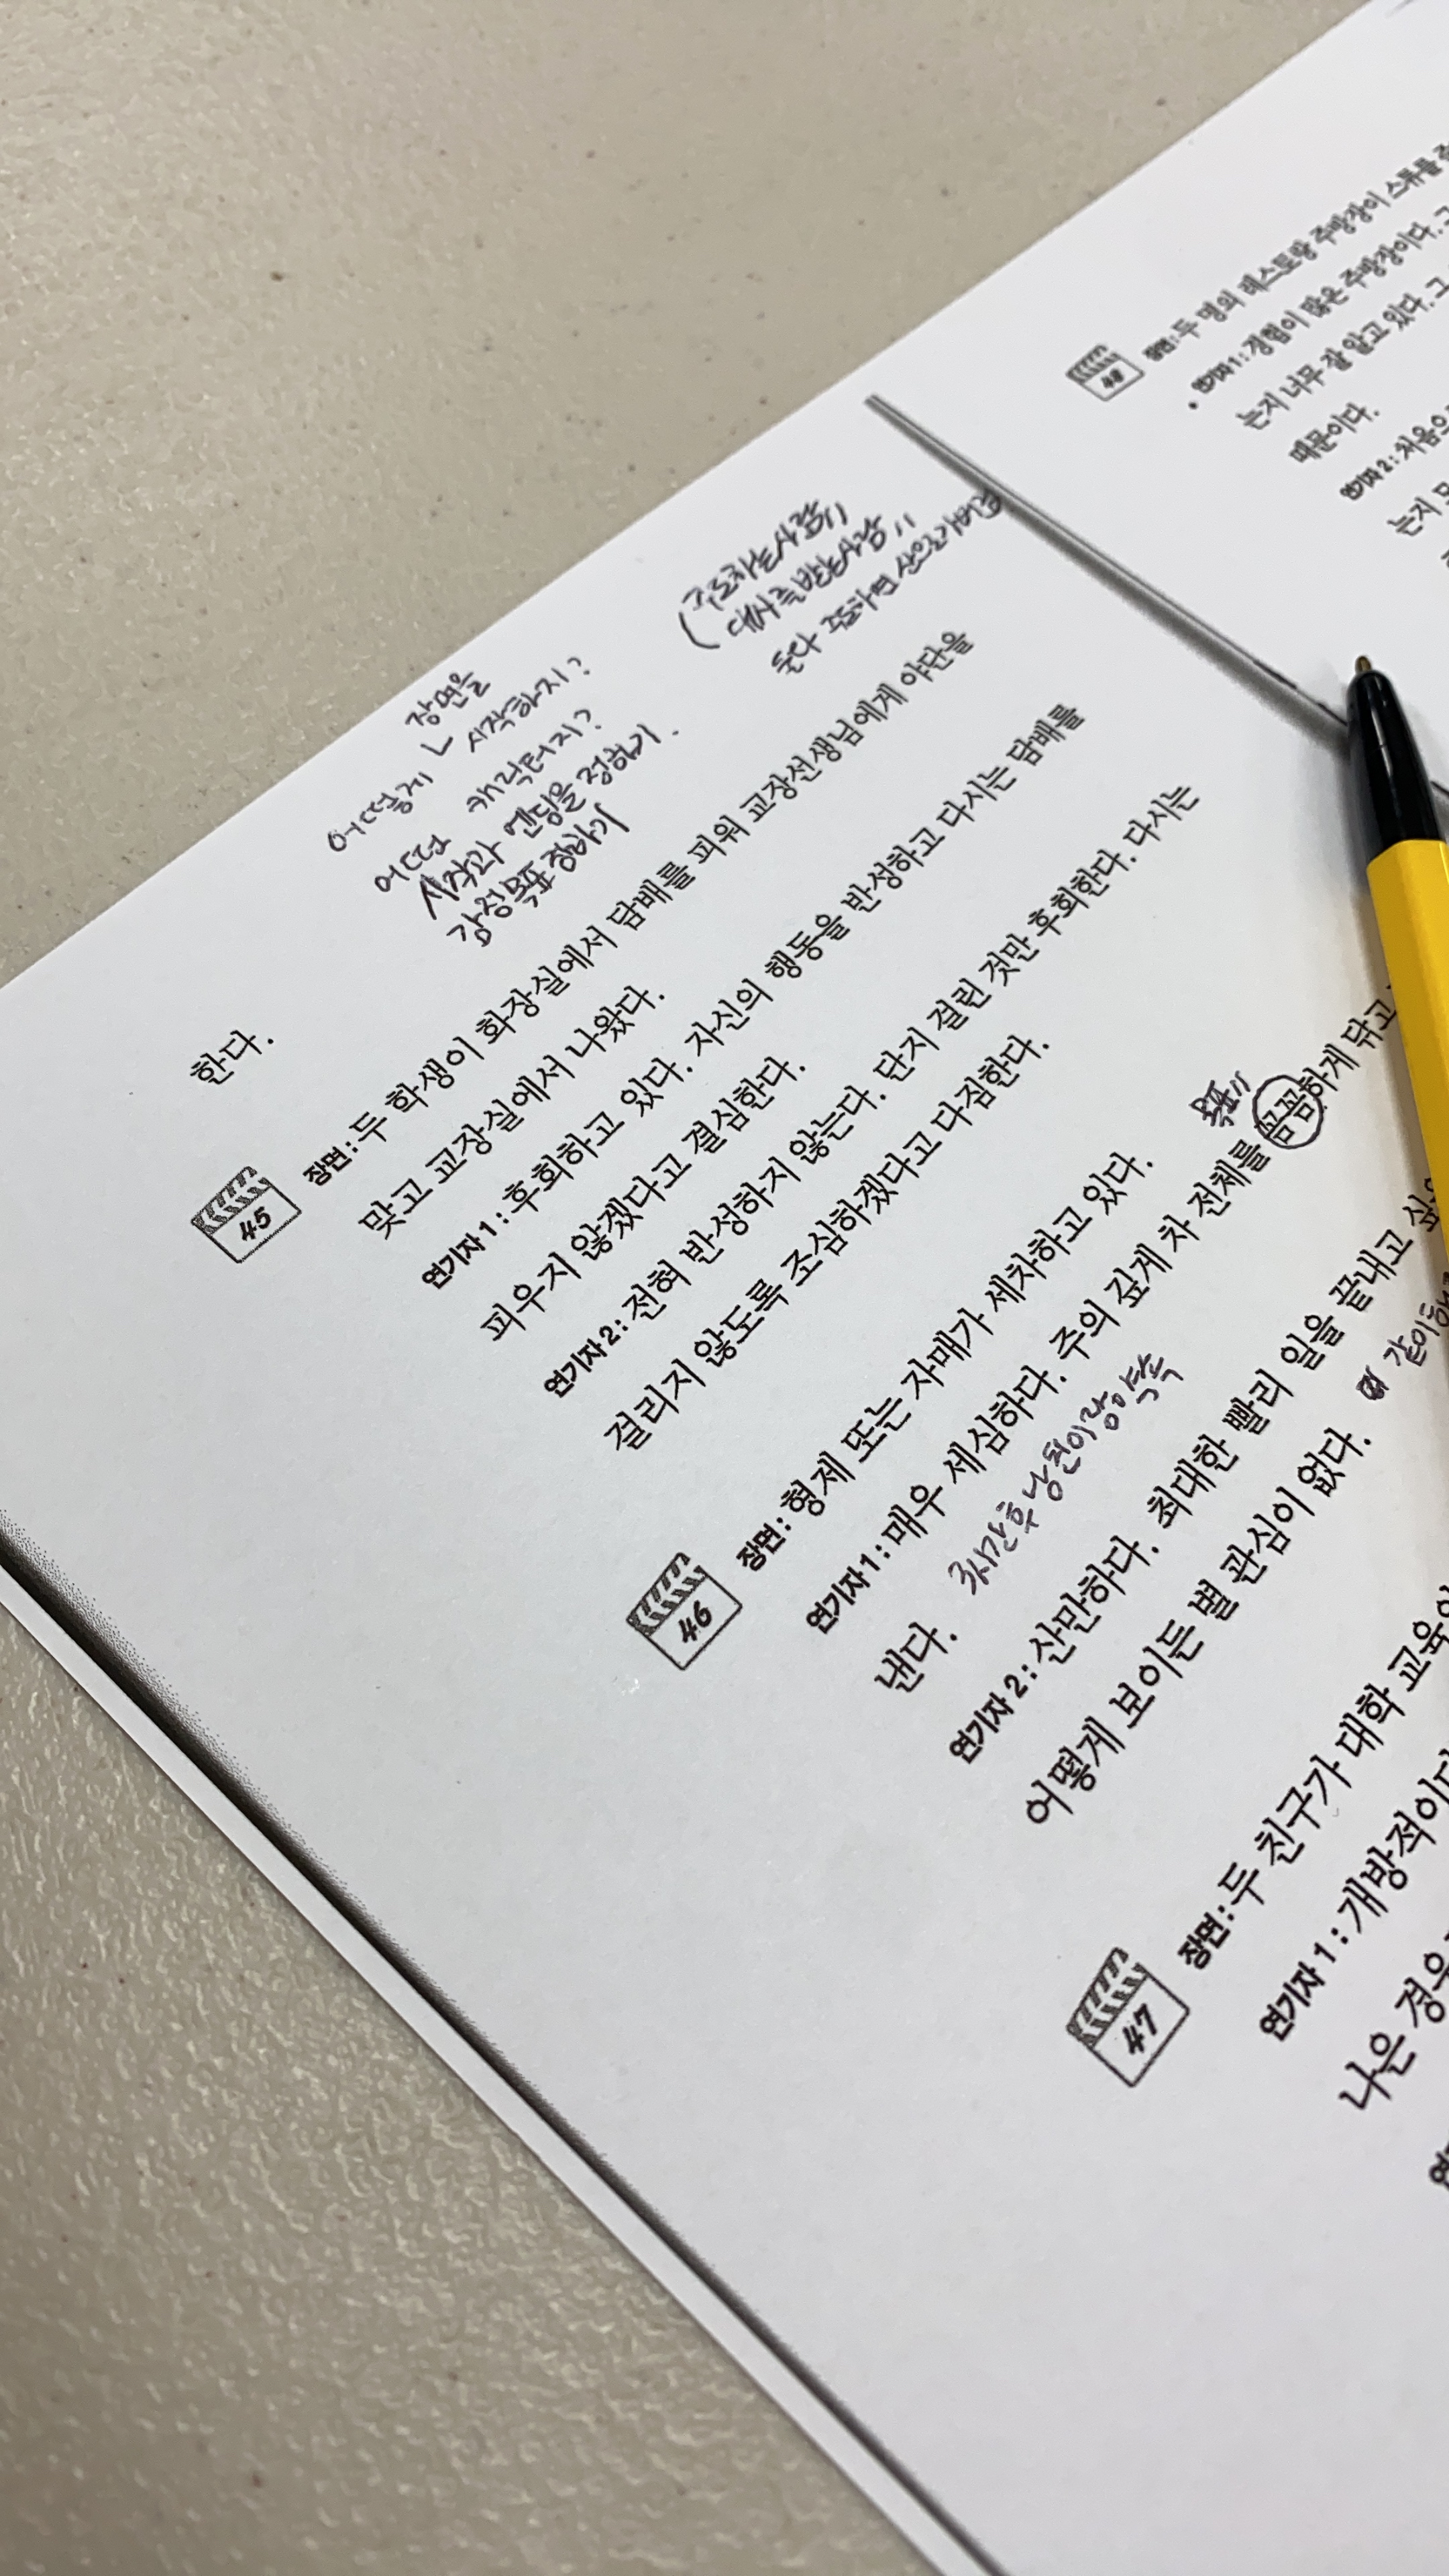 장면을
어떻게 ㄴ 시작하지?
어떤 캐릭터지?
시작과 엔딩을 정하기.
감정목표 정하기
(주도하는사람
대사를받는사람
둘다 주도하면
한다.
45
장면: 두 학생이 화장실에서 담배를 피워 교장선생님에게 야단을
맞고 교장실에서 나왔다.
연기자 1: 후회하고 있다. 자신의 행동을 반성하고 다시는 담배를
피우지 않겠다고 결심한다.
연기자 2: 전혀 반성하지 않는다. 단지 걸린 것만 후회한다. 다시는
걸리지 않도록 조심하겠다고 다짐한다.
46
장면: 형제 또는 자매가 세차하고 있다.
목표
연기자 1: 매우 세심하다. 주의 깊게 차 전체를 꼼꼼하게 닦고
낸다.
연기자 2: 산만하다. 최대한 빨리 일을 끝내고
어떻게 보이든 별 관심이 없다.
같이
47
장면: 두 친구가 대학
연기자 1: 개방적이다
나은
48
장면: 두 명의 레스토랑 주방장이 스튜를
연기자 1: 경험이 많은 주방장이다.
는지 너무 잘 알고 있다. 그
때문이다.
연기자 2: 처음으
는지